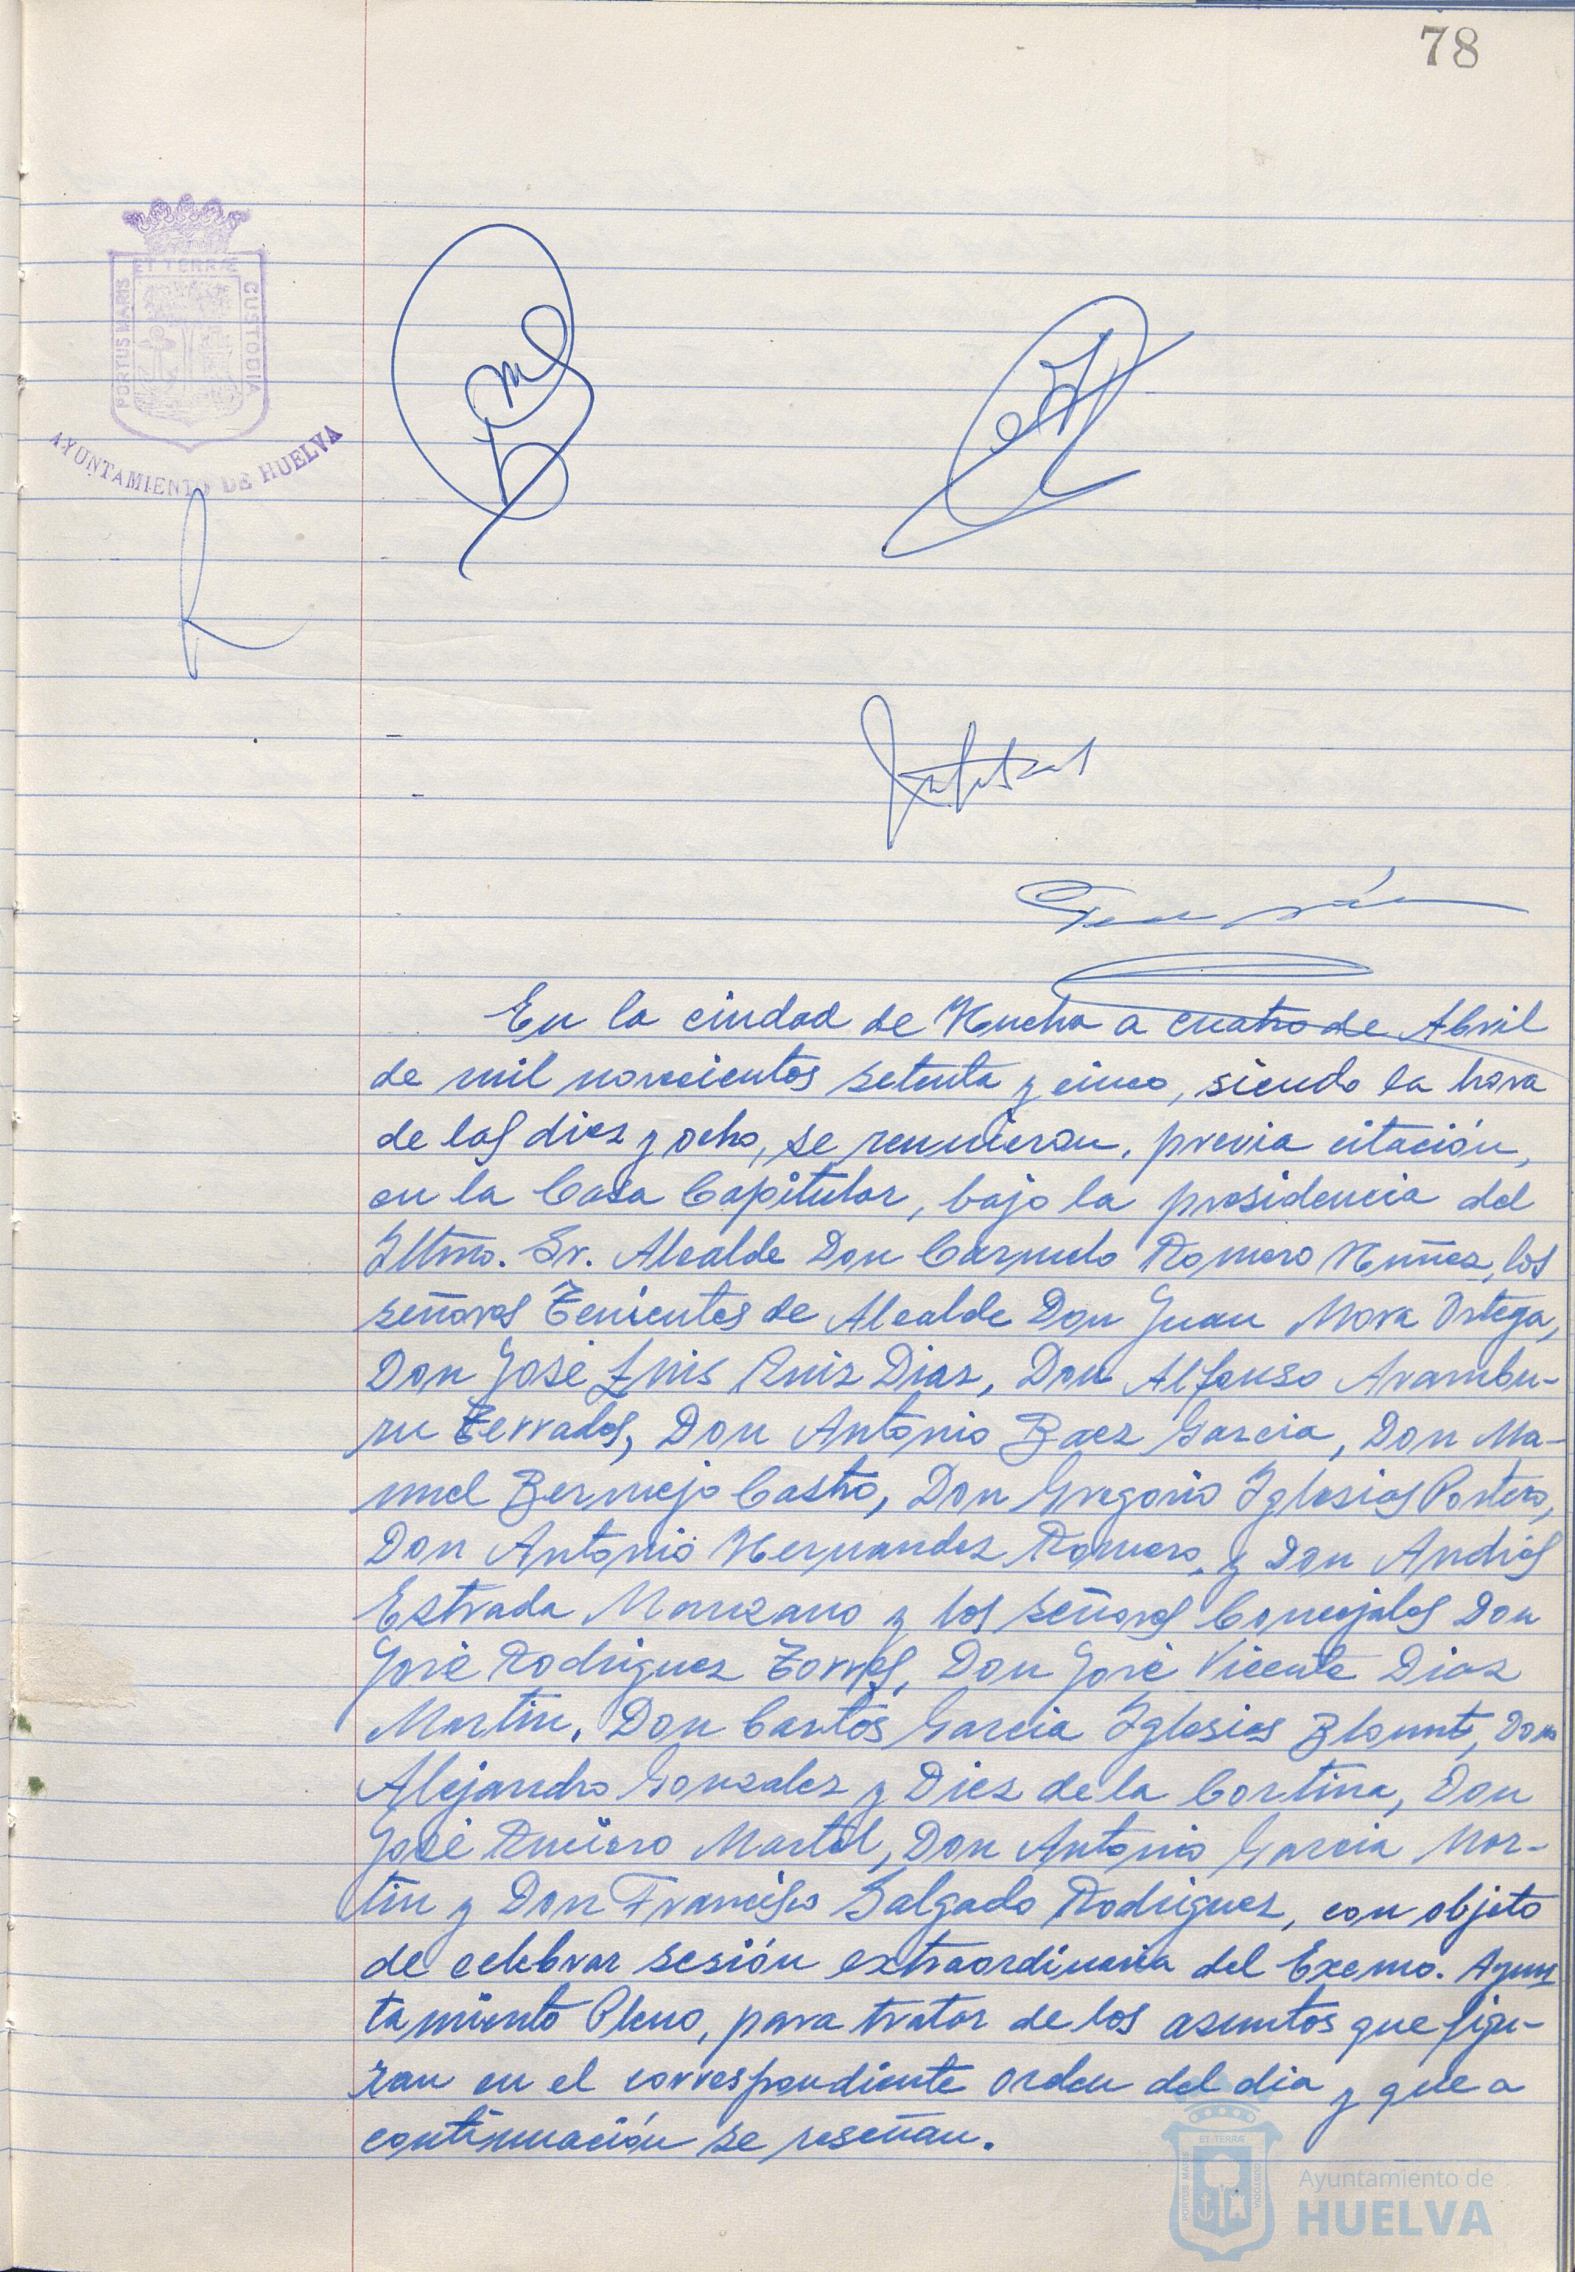 78
ET TERRÆ
PORTUS MARIS
CUSTODIA
AYUNTAMIENTO DE HUELVA
En la ciudad de Huelva a cuatro de Abril
de mil novecientos setenta y cinco, siendo la hora
de las diez y ocho, se reunieron, previa citación,
en la Casa Capitular, bajo la presidencia del
Iltmo. Sr. Alcalde Don Carmelo Romero Núñez, los
señores Tenientes de Alcalde Don Juan Mora Ortega,
Don José Luis Ruiz Diaz, Don Alfonso Arambu-
ru Terrados, Don Antonio Baez Garcia, Don Ma-
nuel Bermejo Castro, Don Gregorio Iglesias Portero,
Don Antonio Hernandez Romero, y Don Andrés
Estrada Manzano y los señores Concejales Don
José Rodriguez Torres, Don José Vicente Diaz
Martin, Don Carlos Garcia Iglesias Blount, Don
Alejandro Gonzalez y Diez de la Cortina, Don
José Martel, Don Antonio Garcia Mar-
tin y Don Francisco Salgado Rodriguez, con objeto
de celebrar sesión extraordinaria del Excmo. Ayun
tamiento Pleno, para tratar de los asuntos que figu-
ran en el correspondiente orden del dia y que a
continuación se reseñan.
ET TERRÆ
PORTUS MARIS
CUSTODIA
Ayuntamiento de
HUELVA